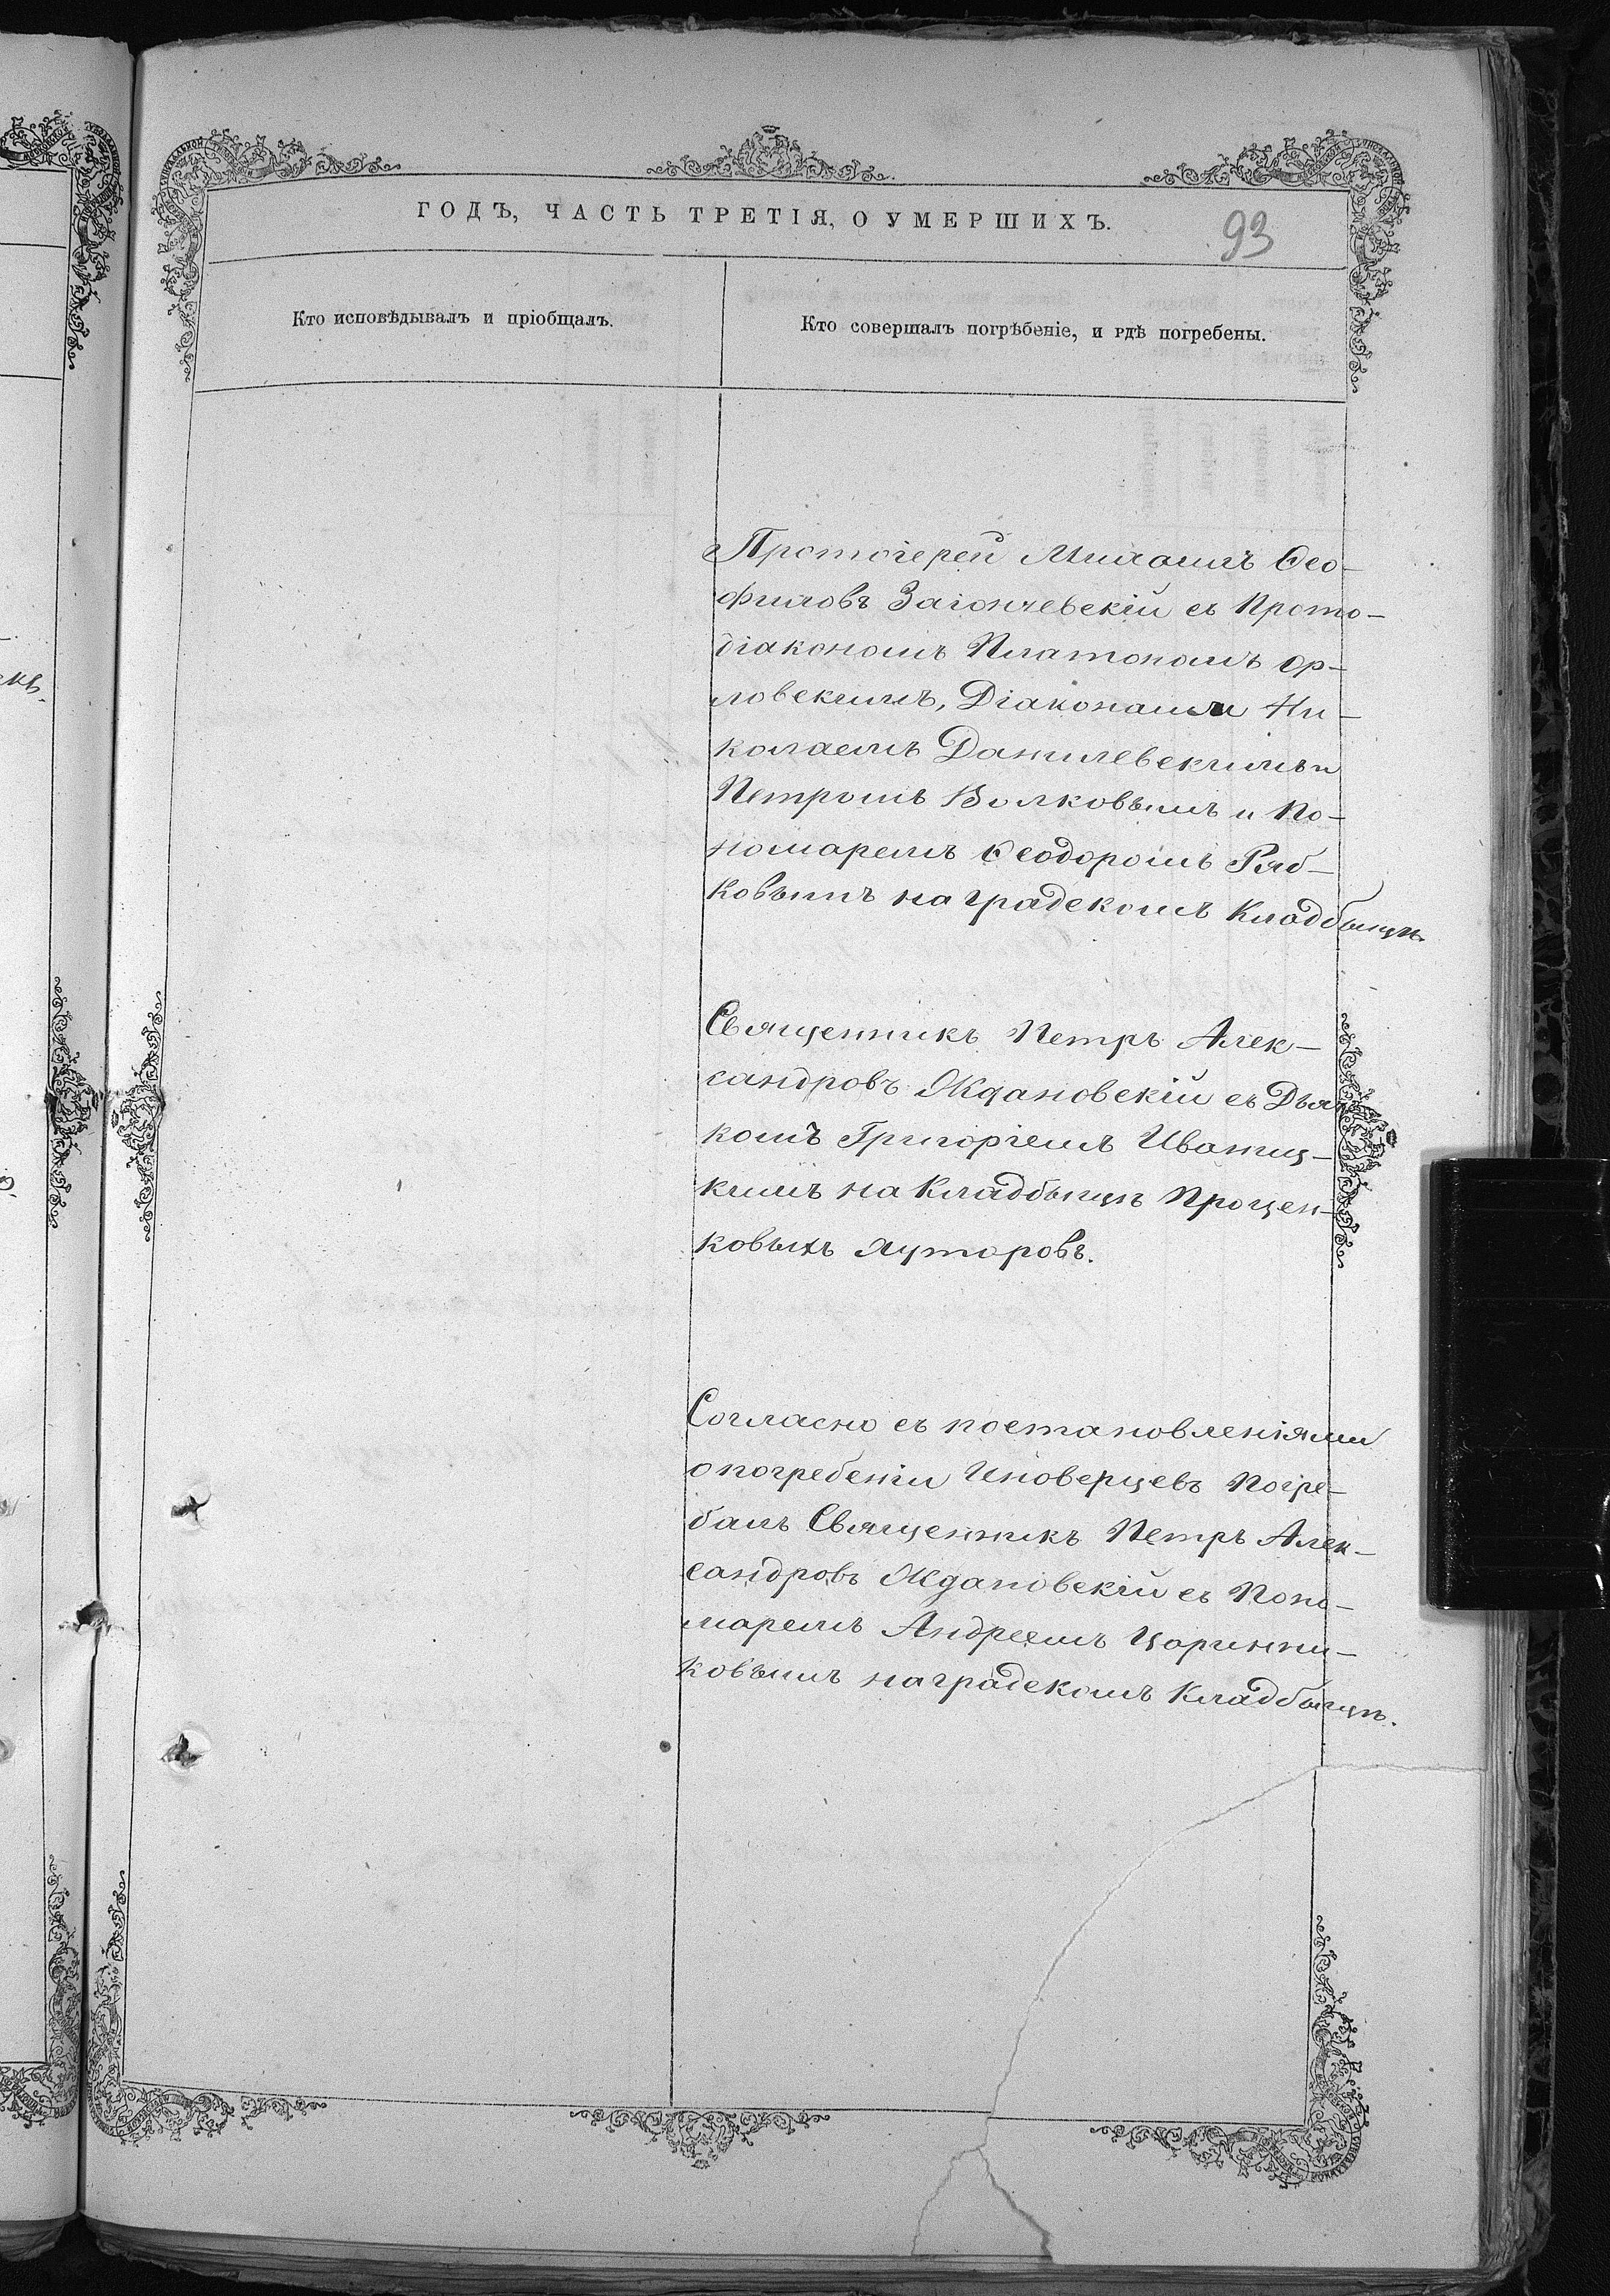 ГОДЪ, ЧАСТЬ ТРЕТІЯ, О УМЕРШИХЪ.
93
Кто исповѣдывалъ и пріобщалъ.
Кто совершалъ погрѣбеніе, и гдѣ погребены.
Протоіерей Михаилъ Ѳео-
филовъ Загончевскій съ Прото-
діакономъ Платономъ Ор-
ловскимъ, Діаконами Ни-
колаемъ Данилевскимъ и
Петромъ Волковымъ и По-
номаремъ Ѳеодоромъ Ряб-
ковымъ на градскомъ Кладбыщѣ.
Священникъ Петръ Алек-
сандровъ Ждановскій съ Дья-
комъ Григоріемъ Иваниц-
кимъ на Кладбыщѣ Процен-
ковыхъ хуторовъ.
Согласно съ постановленіями
о погребеніи Иноверцевъ Погре-
балъ Священникъ Петръ Алек-
сандровъ Ждановскій съ Поно-
маремъ Андреемъ Царинни-
ковымъ на градскомъ Кладбыщѣ.